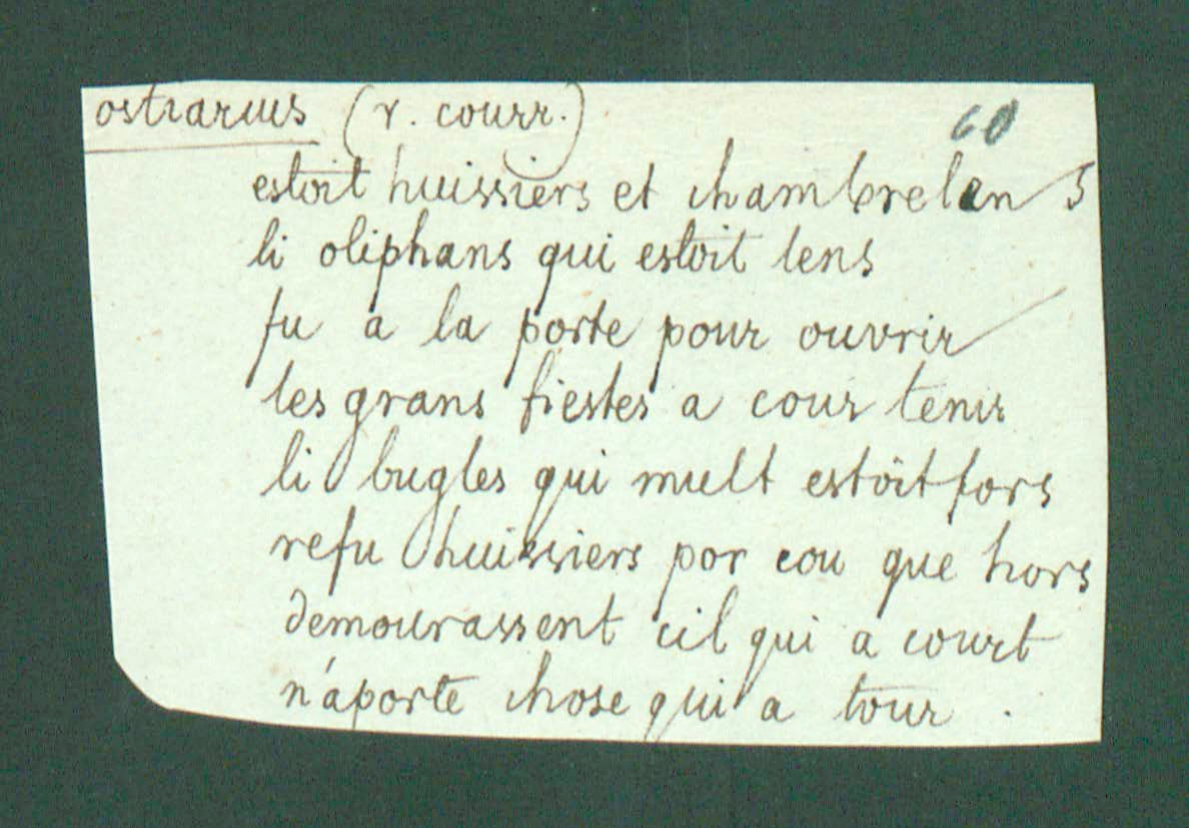 ostiarius (r. courr.) 60
estoit huissiers et chambrelen 5
li oliphans qui estoit lens
fu a la porte pour ouvrir
les grans fiestes a cour tenir
li bugles qui mult estoit fors
refu huissiers por cou que hors
demourassent cil qui a court
n'aporte chose qui a tour.